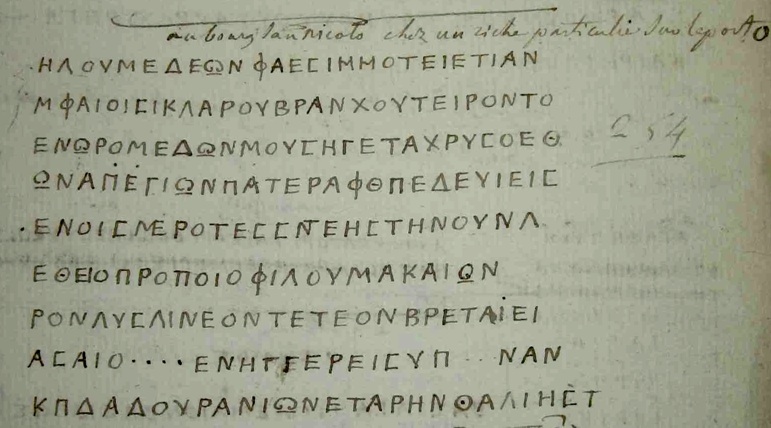 au bourg San Nicolo chez un riche particulier sur la porte
ΗΛΟΥΜΕΔΕΩΝ ΦΑΕCΙΜΜΟΤΕΙΕΤΙΑΝ
ΜΦΑΙΟΙCΙΚΛΑΡΟΥΒΡΑΝΧΟΥΤΕΙΡΟΝΤΟ
ΕΝΩΡΟΜΕΔΩΝΜΟΥCΗΓΕΤΑΧΡΥCΟΕΘ
254
ΩΝΑΠΕΓΙΩΝΠΑΤΕΡΑΦΘΠΕΔΕΥΙΕΙC
ΕΝΟΙCΜΕΡΟΤΕCCΝΤΕΗCΤΗΝΟΥΝΛ
ΕΘΕΙΟΠΡΟΠΟΙΟΦΙΛΟΥΜΑΚΑΙΩΝ
ΡΟΝΛΥCΛΙΝΕΟΝΤΕΤΕΟΝΒΡΕΤΑΙΕΙ
ΑCΑΙΟ····ΕΝΗΓΓΕΡΕΙCΥΠ··ΝΑΝ
ΚΠΔΑΔΟΥΡΑΝΙΩΝΕΤΑΡΗΝΘΑΛΙΗCΤ